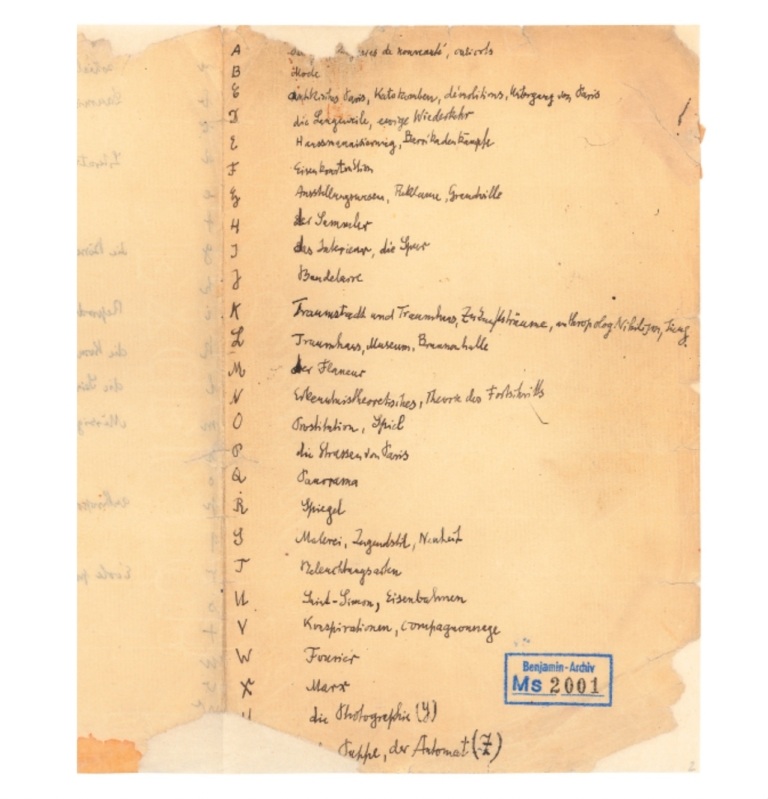 A de nouveauté, calicots
B Mode
C antikisches Paris, Katakomben, démolitions, Untergang von Paris
D die Langeweile, ewige Wiederkehr
E Haussmannisierung, Barrikadenkämpfe
F Eisenkonstruktion
G Ausstellungswesen, Reklame, Grandville
H der Sammler
I das Interieur, die Spur
J Baudelaire
K Traumstadt und Traumhaus, Zukunftsträume, anthropolog. Nihilismus, Jung
L Traumhaus, Museum, Brunnenhalle
M der Flaneur
N Erkenntnistheoretisches, Theorie des Fortschritts
O Prostitution, Spiel
P die Strassen von Paris
Q Panorama
R Spiegel
S Malerei, Jugendstil, Neuheit
T Beleuchtungsarten
U Saint-Simon, Eisenbahnen
V Konspirationen, compagnonnage
W Fourier
X Marx
die Photographie (Y)
Puppe, der Automat (Z)
Benjamin-Archiv
Ms 2001
2